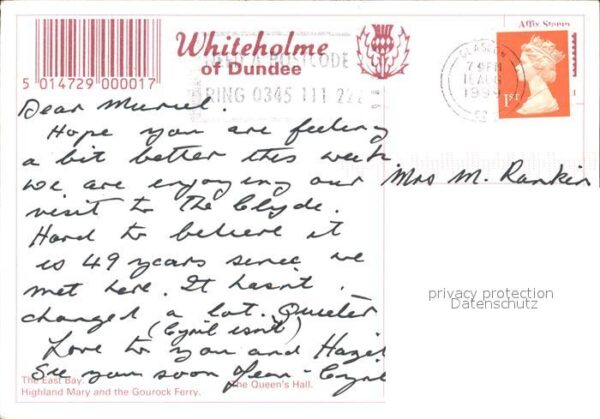 Whiteholme
of Dundee
Affix Stamp
5 014729 000017
POSTCODE
RING 0345 111 222
GLASGOW
7 PM
1999
1ST
Dear Muriel.
Hope you are feeling
a bit better this week
we are enjoying our
visit to the Clyde.
Hard to believe it
is 49 years since we
met here. It hasn't
changed a lot. Quieter
(Cyril isn't)
Love to you and Hazel
See you soon Jean - Cyril
Mrs M. Rankin
privacy protection
Datenschutz
The East Bay. The Queen's Hall.
Highland Mary and the Gourock Ferry.